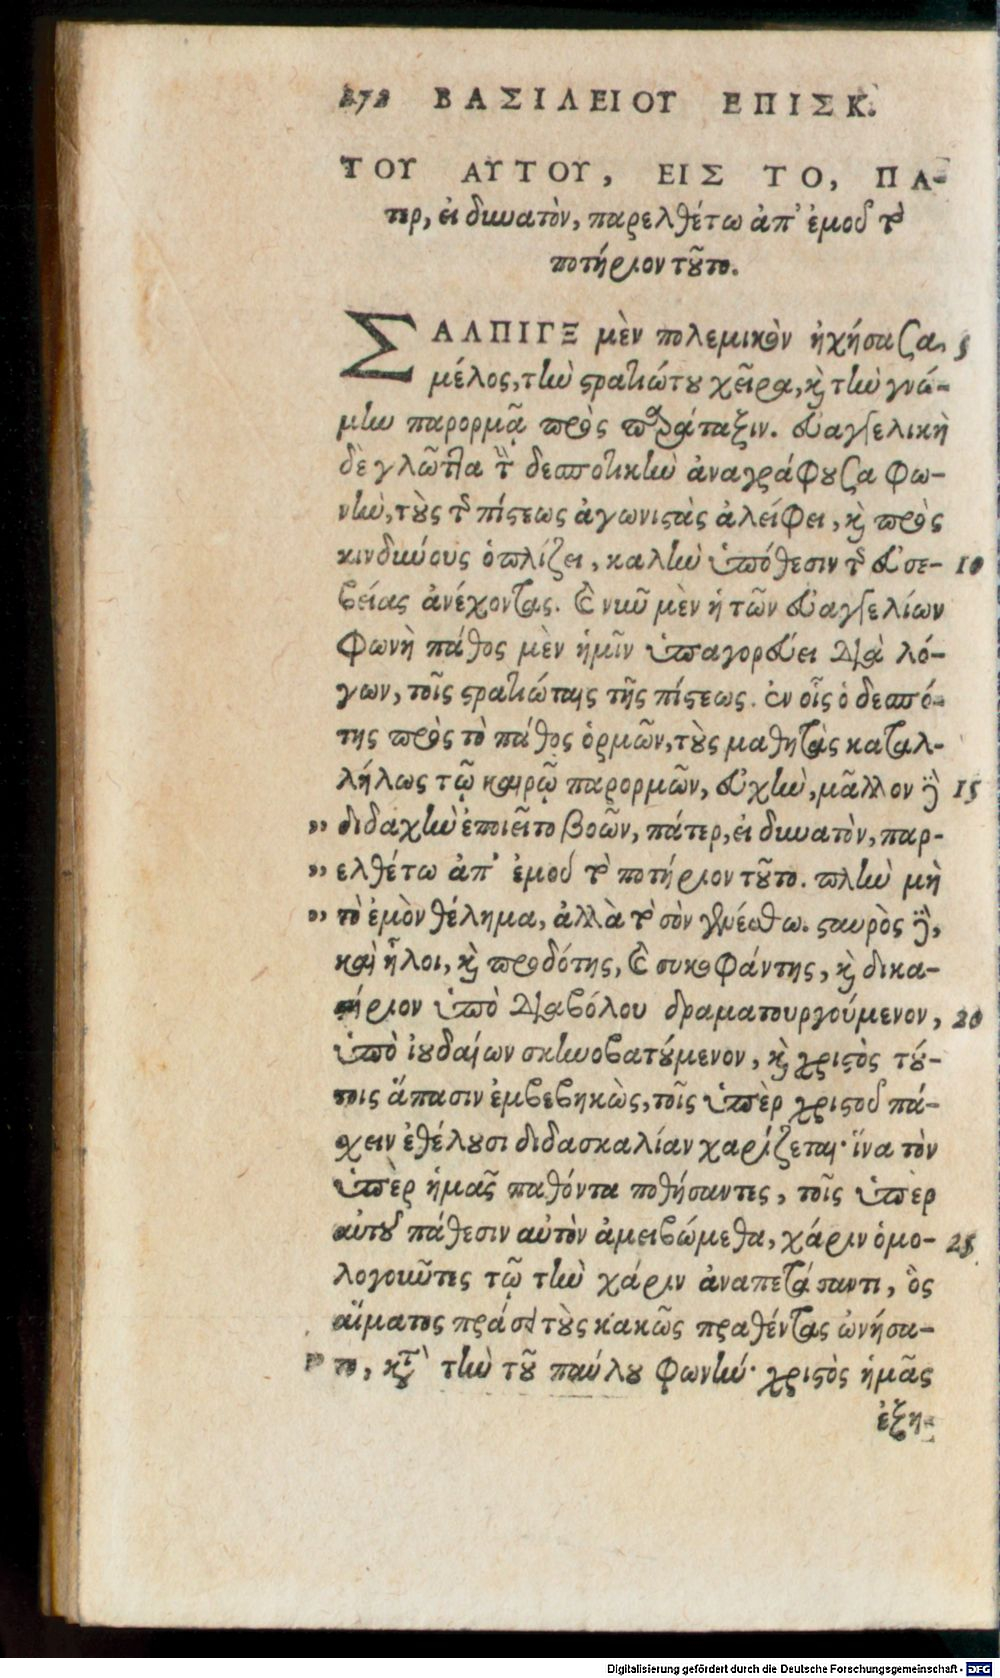 272 ΒΑΣΙΛΕΙΟΥ ΕΠΙΣΚ.
ΤΟΥ ΑΥΤΟΥ, ΕΙΣ ΤΟ, ΠΑ-
τερ, εἰ δυνατὸν, παρελθέτω ἀπ' ἐμοῦ τὸ
ποτήριον τοῦτο.
ΣΑΛΠΙΓΞ μὲν πολεμικὸν ἠχήσασα 5
μέλος, τὴν στρατιώτου χεῖρα, καὶ τὴν γνώ-
μην παρορμᾷ πρὸς παράταξιν. εὐαγγελικὴ
δὲ γλῶττα τὴν δεσποτικὴν ἀναγράφουσα φω-
νὴν, τοὺς τῆς πίστεως ἀγωνιστὰς ἀλείφει, καὶ πρὸς
κινδύνους ὁπλίζει, καλὴν ὑπόθεσιν τῆς εὐσε- 10
βείας ἀνέχοντας. καὶ νῦν μὲν ἡ τῶν εὐαγγελίων
φωνὴ πάθος μὲν ἡμῖν ὑπαγορεύει διὰ λό-
γων, τοῖς στρατιώταις τῆς πίστεως. ἐν οἷς ὁ δεσπό-
της πρὸς τὸ πάθος ὁρμῶν, τοὺς μαθητὰς καταλ-
λήλως τῷ καιρῷ παρορμῶν, εὐχὴν, μᾶλλον δὲ 15
" διδαχὴν ἐποιεῖτο βοῶν, πάτερ, εἰ δυνατὸν, παρ-
" ελθέτω ἀπ' ἐμοῦ τὸ ποτήριον τοῦτο. πλὴν μὴ
" τὸ ἐμὸν θέλημα, ἀλλὰ τὸ σὸν γενέσθω. σταυρὸς δὲ,
καὶ ἧλοι, καὶ προδότης, καὶ συκοφάντης, καὶ δικα-
στήριον ὑπὸ διαβόλου δραματουργούμενον, 20
ὑπὸ ἰουδαίων σκηνοβατούμενον, καὶ χριστὸς τού-
τοις ἅπασιν ἐμβεβηκὼς, τοῖς ὑπὲρ χριστοῦ πά-
σχειν ἐθέλουσι διδασκαλίαν χαρίζεται· ἵνα τὸν
ὑπὲρ ἡμᾶς παθόντα ποθήσαντες, τοῖς ὑπὲρ
αὐτοῦ πάθεσιν αὐτὸν ἀμειβώμεθα, χάριν ὁμο- 25
λογοῦντες τῷ τὴν χάριν ἀναπετάσαντι, ὃς
αἵματος πράσει τοὺς κακῶς πραθέντας ὠνήσα-
το, κατὰ τὴν τοῦ παύλου φωνήν· χριστὸς ἡμᾶς
ἐξη-
Digitalisierung gefördert durch die Deutsche Forschungsgemeinschaft - DFG